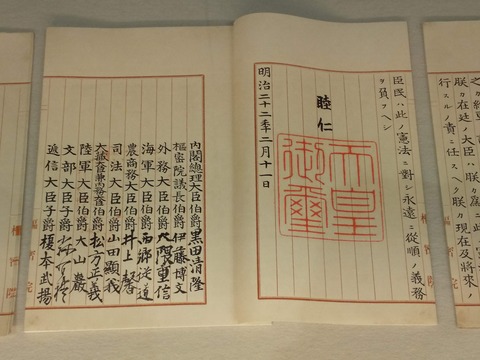 朕カ在廷ノ大臣ハ朕カ為ニ此
行スルノ責ニ任スヘク朕カ現在及將來ノ
臣民ハ此ノ憲法ニ對シ永遠ニ從順ノ義務
ヲ負フヘシ
睦仁
天皇
御璽
明治二十二年二月十一日
內閣總理大臣伯爵黒田清隆
樞密院議長伯爵伊藤博文
外務大臣伯爵大隈重信
海軍大臣伯爵西郷従道
農商務大臣伯爵井上馨
司法大臣伯爵山田顯義
大藏大臣兼內務大臣伯爵松方正義
陸軍大臣伯爵大山巖
文部大臣子爵森有禮
遞信大臣子爵榎本武揚
樞密院